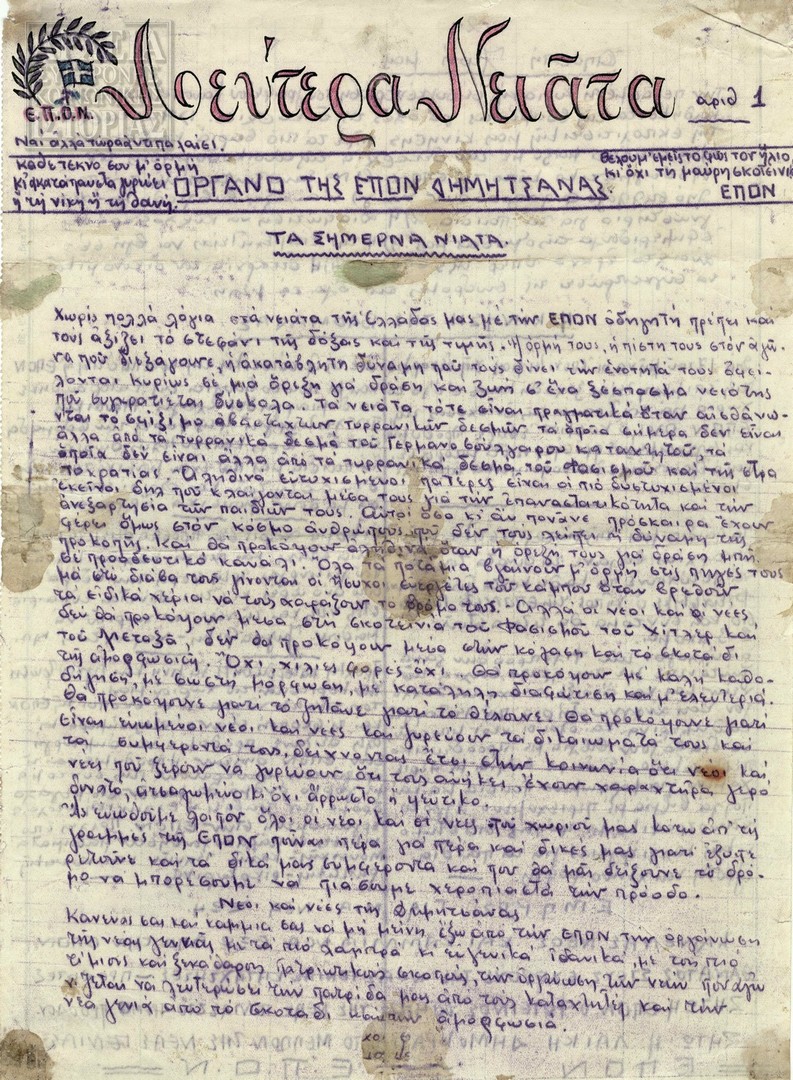 Λεύτερα Νειᾶτα
αριθ 1
Ε.Π.Ο.Ν.
Ναι, ἀλλά τώρα ἀντιπαλαίει
κάθε τέκνο σου μ' ὁρμή
κι ἀκατάπαυστα γυρεύει
ἤ τή νίκη ἤ τή θανή.
ΟΡΓΑΝΟ ΤΗΣ ΕΠΟΝ ΔΗΜΗΤΣΑΝΑΣ
θέλουμ' ἐμεῖς το φῶς τον ἥλιο
κι ὄχι τη μαύρη σκοτεινιά
ΕΠΟΝ
ΤΑ ΣΗΜΕΡΝΑ ΝΙΑΤΑ.
Χωρίς πολλά λόγια στά νειάτα τῆς Ἑλλάδας μας μέ τήν ΕΠΟΝ ὁδηγητή πρέπει και
τους ἀξίζει τό στεφάνι τῆς δόξας καί τῆς τιμῆς. Ἡ ὁρμή τους, ἡ πίστη τους στόν ἀγῶ-
να πού διεξάγουνε, ἡ ἀκατάβλητη δύναμη πού τους δίνει τήν ἑνότητα τους ὀφεί-
λονται κυρίως σέ μιά ὄρεξη γιά δράση καί ζωή σ' ἕνα ξέσπασμα νειότης
πού συγκρατιέται δύσκολα. Τα νειάτα τότε εἶναι πραγματικά ὅταν αἰσθάνω-
νται το σφίξιμο ἀβάσταχτων τυρρανικῶν δεσμῶν τά ὁποῖα σήμερα δέν εἶναι
ἄλλα από τά τυρρανικά δεσμά τοῦ Γερμανοβούλγαρου καταχτητοῦ, τά
ὁποῖα δέν εἶναι ἄλλα ἀπό τά τυρρανικά δεσμά τοῦ Φασισμοῦ καί τῆς στρα
τοκρατίας. Ἀληθινά εὐτυχισμένοι πατέρες εἶναι οἱ πιό δυστυχισμένοι
ἐκεῖνοι δηλ πού κλαίγονται μέσα τους γιά τήν ἐπαναστατικότητα καί τήν
ἀνεξαρτησία τῶν παιδιῶν τους. Αὐτοί ὅσο κι ἄν πονᾶνε πρόσκαιρα ἔχουν
φέρει ὅμως στόν κόσμο ἀνθρώπους πού δέν τους λείπει ἡ δύναμη τῆς
προκοπῆς. Καί θά προκόψουν ἀληθινά ὅταν ἡ ὄρεξή τους γιά δράση μπῆ
σέ προοδευτικό κανάλι. Ὅλα τά ποτάμια βγαίνουν μ' ὁρμή στις πηγές τους
μά στό διάβα τους γίνονται οἱ ἥσυχοι εὐεργέτες τοῦ κάμπου ὅταν βρεθοῦν
τά εἰδικά χέρια νά τούς χαράξουν το δρόμο τους. Ἀλλά οἱ νέοι καί οἱ νέες
δέν θά προκόψουν μέσα στή σκοτεινιά τοῦ Φασισμοῦ τοῦ Χίτλερ καί
τοῦ Μεταξᾶ, δέν θά προκόψουν μέσα στήν κόλαση καί τό σκοτάδι
τῆς ἀμορφωσιᾶς. Ὄχι, χίλιες φορές ὄχι. Θά προκόψουν μέ καλή καθο-
δήγηση, μέ σωστή μόρφωση, μέ κατάλληλη διαφώτιση καί μ' ἐλευτεριά.
Θά προκόψουνε γιατί τό ζητᾶνε γιατί τό θέλουνε. Θά προκόψουνε γιατί
εἶναι ἑνωμένοι νέοι καί νέες καί γυρεύουν τά δικαιώματά τους καί
τά συμφέροντά τους, δείχνοντας ἔτσι στήν κοινωνία ὅτι νέοι καί
νέες πού ξέρουν νά γυρεύουν ὅτι τους ἀνήκει, ἔχουν χαρακτῆρα γερό
δυνατό, ἀτσαλωμένο κι ὄχι ἄρρωστο ἤ ψεύτικο.
Ἄς ἑνωθοῦμε λοιπόν ὅλοι οἱ νέοι καί οἱ νέες τοῦ χωριοῦ μας κάτω ἀπ' τίς
γραμμές τῆς ΕΠΟΝ πούναι πέρα γιά πέρα καί δικές μας γιατί ἐξυπη
ρετοῦνε καί τά δικά μας συμφέροντα καί πού θά μᾶς δείξουνε τό δρό-
μο νά μπορέσουμε νά πιάσουμε χεροπιαστά τήν πρόοδο.
Νέοι καί νέες τῆς Δημητσάνας
Κανένας σας καί καμμιά σας νά μή μείνη ἔξω ἀπό τήν ΕΠΟΝ τήν ὀργάνωση
τῆς νέας γενιᾶς μέ τά πιό λαμπρά κι εὐγενικά ἰδανικά, μέ τούς πιό
τίμιους καί ξεκάθαρους πατριωτικούς σκοπούς, τήν ὀργάνωση τῶν νέων πού ἀγω
νίζεται νά λευτερώσει τήν πατρίδα μας ἀπό τούς καταχτητές καί τήν
νέα γενιά ἀπό τό σκοτάδι καί τήν ἀμορφωσιά.